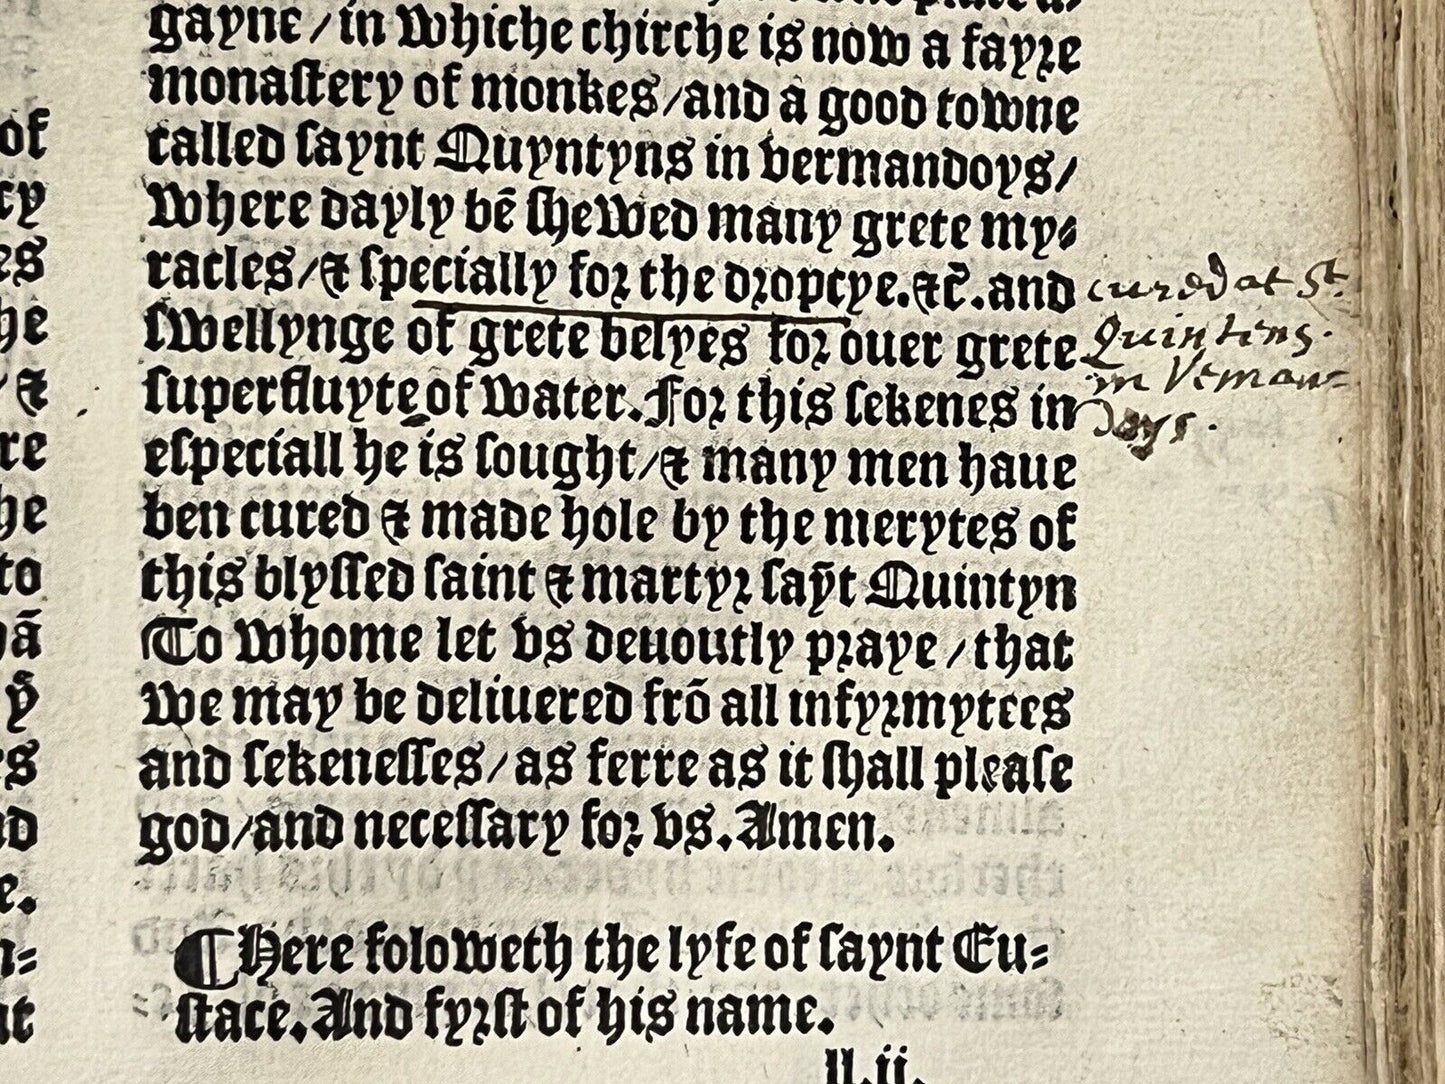 of
cy
es
he
/ &
re
he
to
ā
ẏ
s
d
e.
n=
nt
gayne/in whiche chirche is now a fayre
monastery of monkes/and a good towne
called saynt Quyntyns in vermandoys/
where dayly bē shewed many grete my=
racles/& specially for the dropcye.&c̄.and
swellynge of grete belyes for ouer grete
superfluyte of water.For this sekenes in
especiall he is sought/& many men haue
ben cured & made hole by the merytes of
this blyssed saint & martyr saȳt Quintyn
To whome let vs deuoutly praye/that
we may be deliuered frō all infyrmytees
and sekenesses/as ferre as it shall please
god/and necessary for vs.Amen.
Here foloweth the lyfe of saynt Eu=
stace.And fyrst of his name.
ll.ii.
cured at St.
Quintins.
in Veman=
doys.